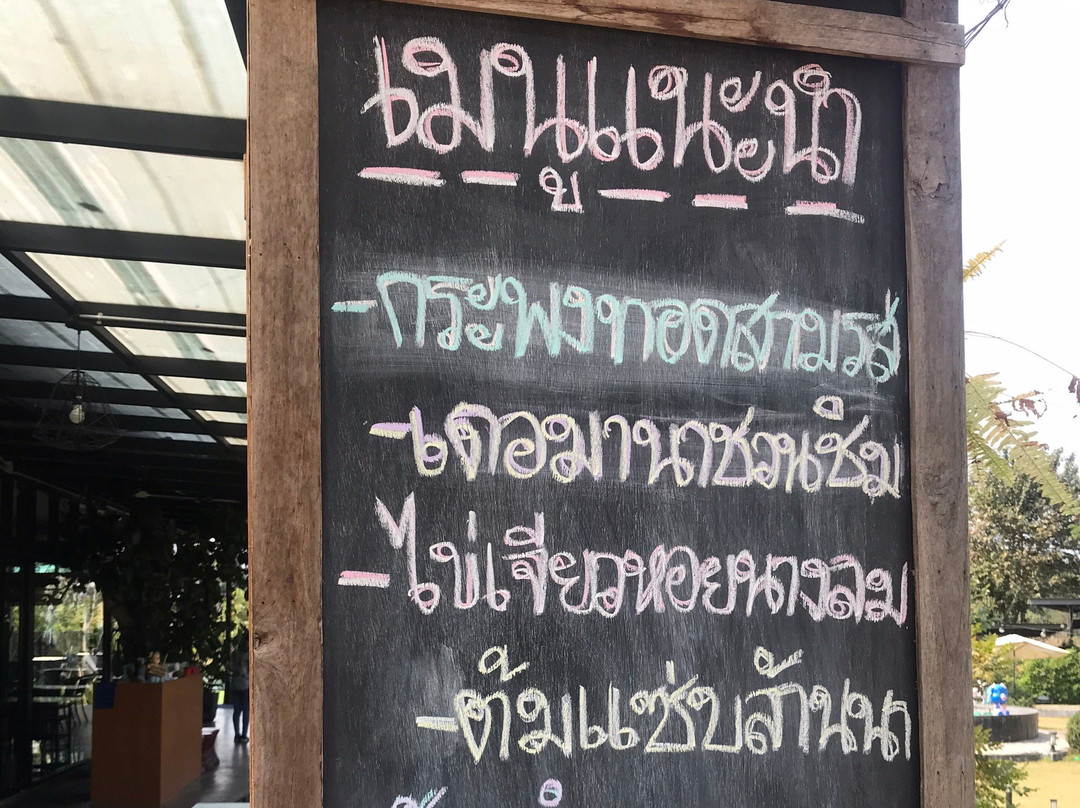 เมนูแนะนำ
-กระพงทอดสามรส
-เดอมานาชวนชิม
-ไข่เจียวหอยนางลม
-ต้มแซ่บล้านนา